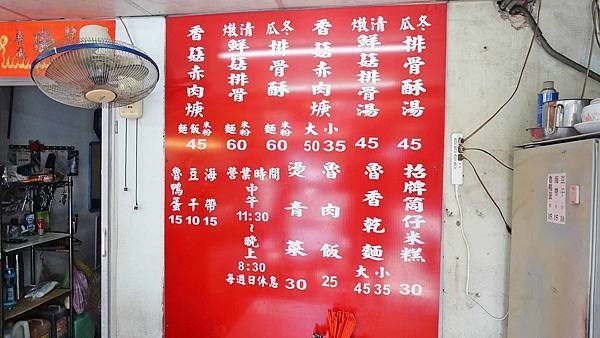 冬瓜排骨酥湯 45
清燉鮮菇排骨湯 45
香菇赤肉焿 大 50 小 35
冬瓜排骨酥 米粉 麵 60
清燉鮮菇排骨 米粉 麵 60
香菇赤肉焿 米粉 飯 麵 45
招牌筒仔米糕 30
魯香乾麵 大 45 小 35
魯肉飯 25
燙青菜 30
營業時間
中午11:30~晚上8:30
每週日休息
海帶 15
豆干 10
魯鴨蛋 15